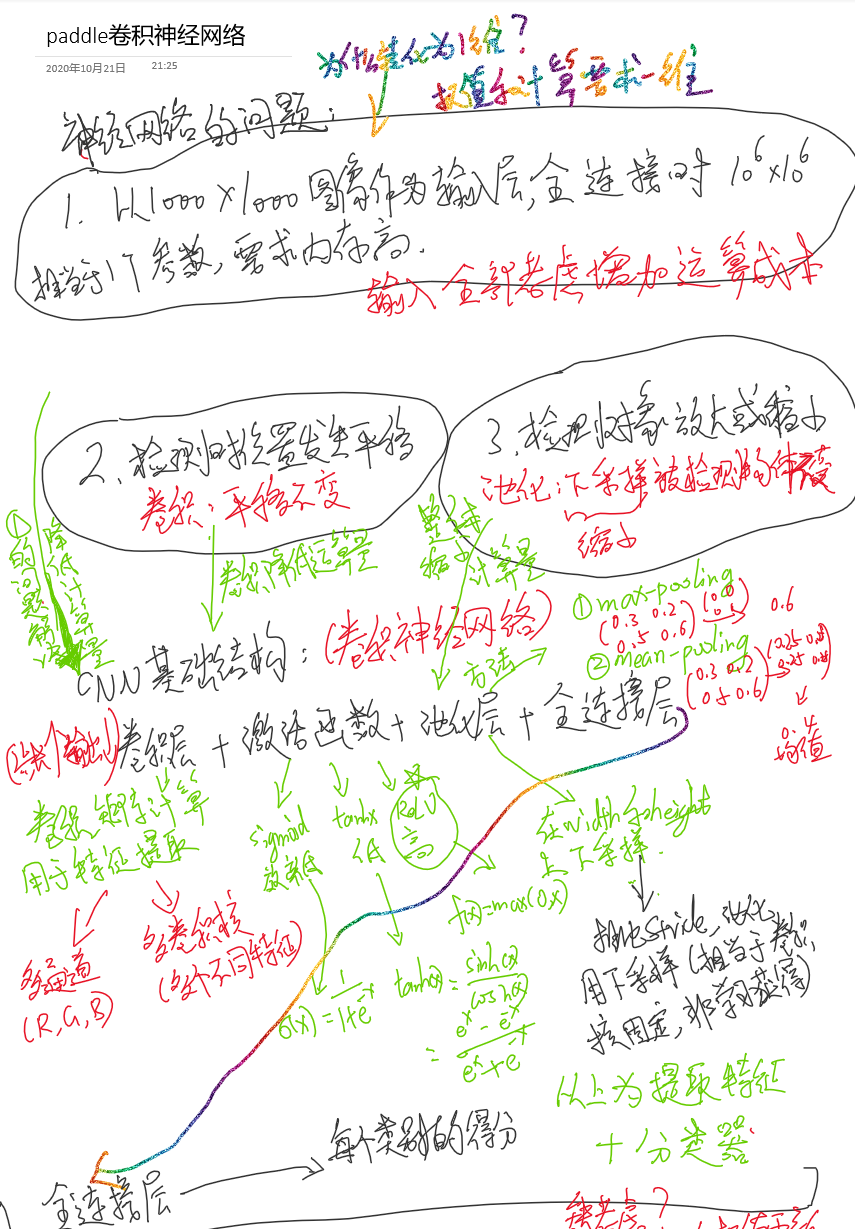 paddle卷积神经网络
2020年10月21日 21:25
为什么转化为1维？
权值和计算要求一维
神经网络的问题：
1. 以1000×1000图像作为输入层,全连接时 10⁶×10⁶
相当于1T参数,要求内存高.
输入全部考虑增加运算成本
2、检测时位置发生平移
卷积：平移不变
3、检测对象放大或缩小
池化：下采样被检测物体不变
缩小
①的问题解决
降低计算量
卷积降低运算量
缩小计算量
方法
① max-pooling
(0.3 0.2
0.5 0.6)
0.6
② mean-pooling
(0.3 0.2
0.5 0.6)
0.4
均值
CNN基础结构：(卷积神经网络)
卷积层 + 激活函数 + 池化层 + 全连接层
卷积矩阵计算
用于特征提取
多通道
(R,G,B)
多卷积核
(多个不同特征)
sigmoid
效率低
tanhx
低
ReLU
高
f(x)=max(0,x)
σ(x) = 1/(1+e⁻ˣ)
tanh(x) = sinh(x)/cosh(x)
= (eˣ - e⁻ˣ)/(eˣ + e⁻ˣ)
在width和height
上下采样.
用下采样 (相当于卷积,
核固定,非学习获得)
以上为提取特征
+ 分类器
全连接层
每个类别的得分